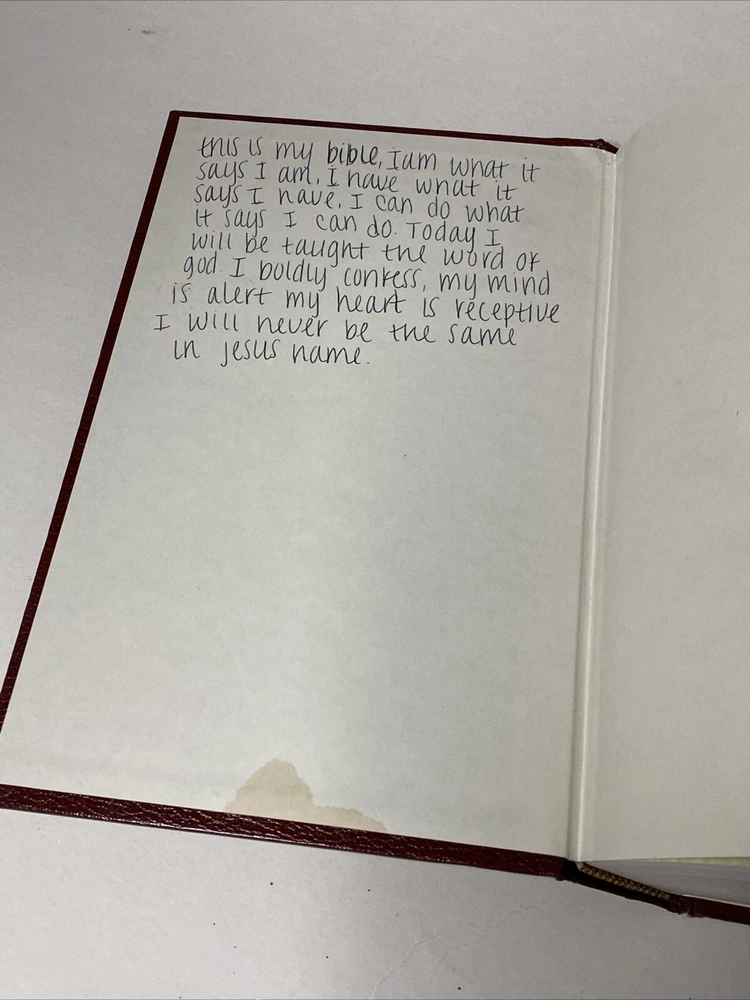 this is my bible, I am what it
says I am, I have what it
says I have, I can do what
it says I can do. Today I
will be taught the word of
god. I boldly confess, my mind
is alert my heart is receptive
I will never be the same
in jesus name.